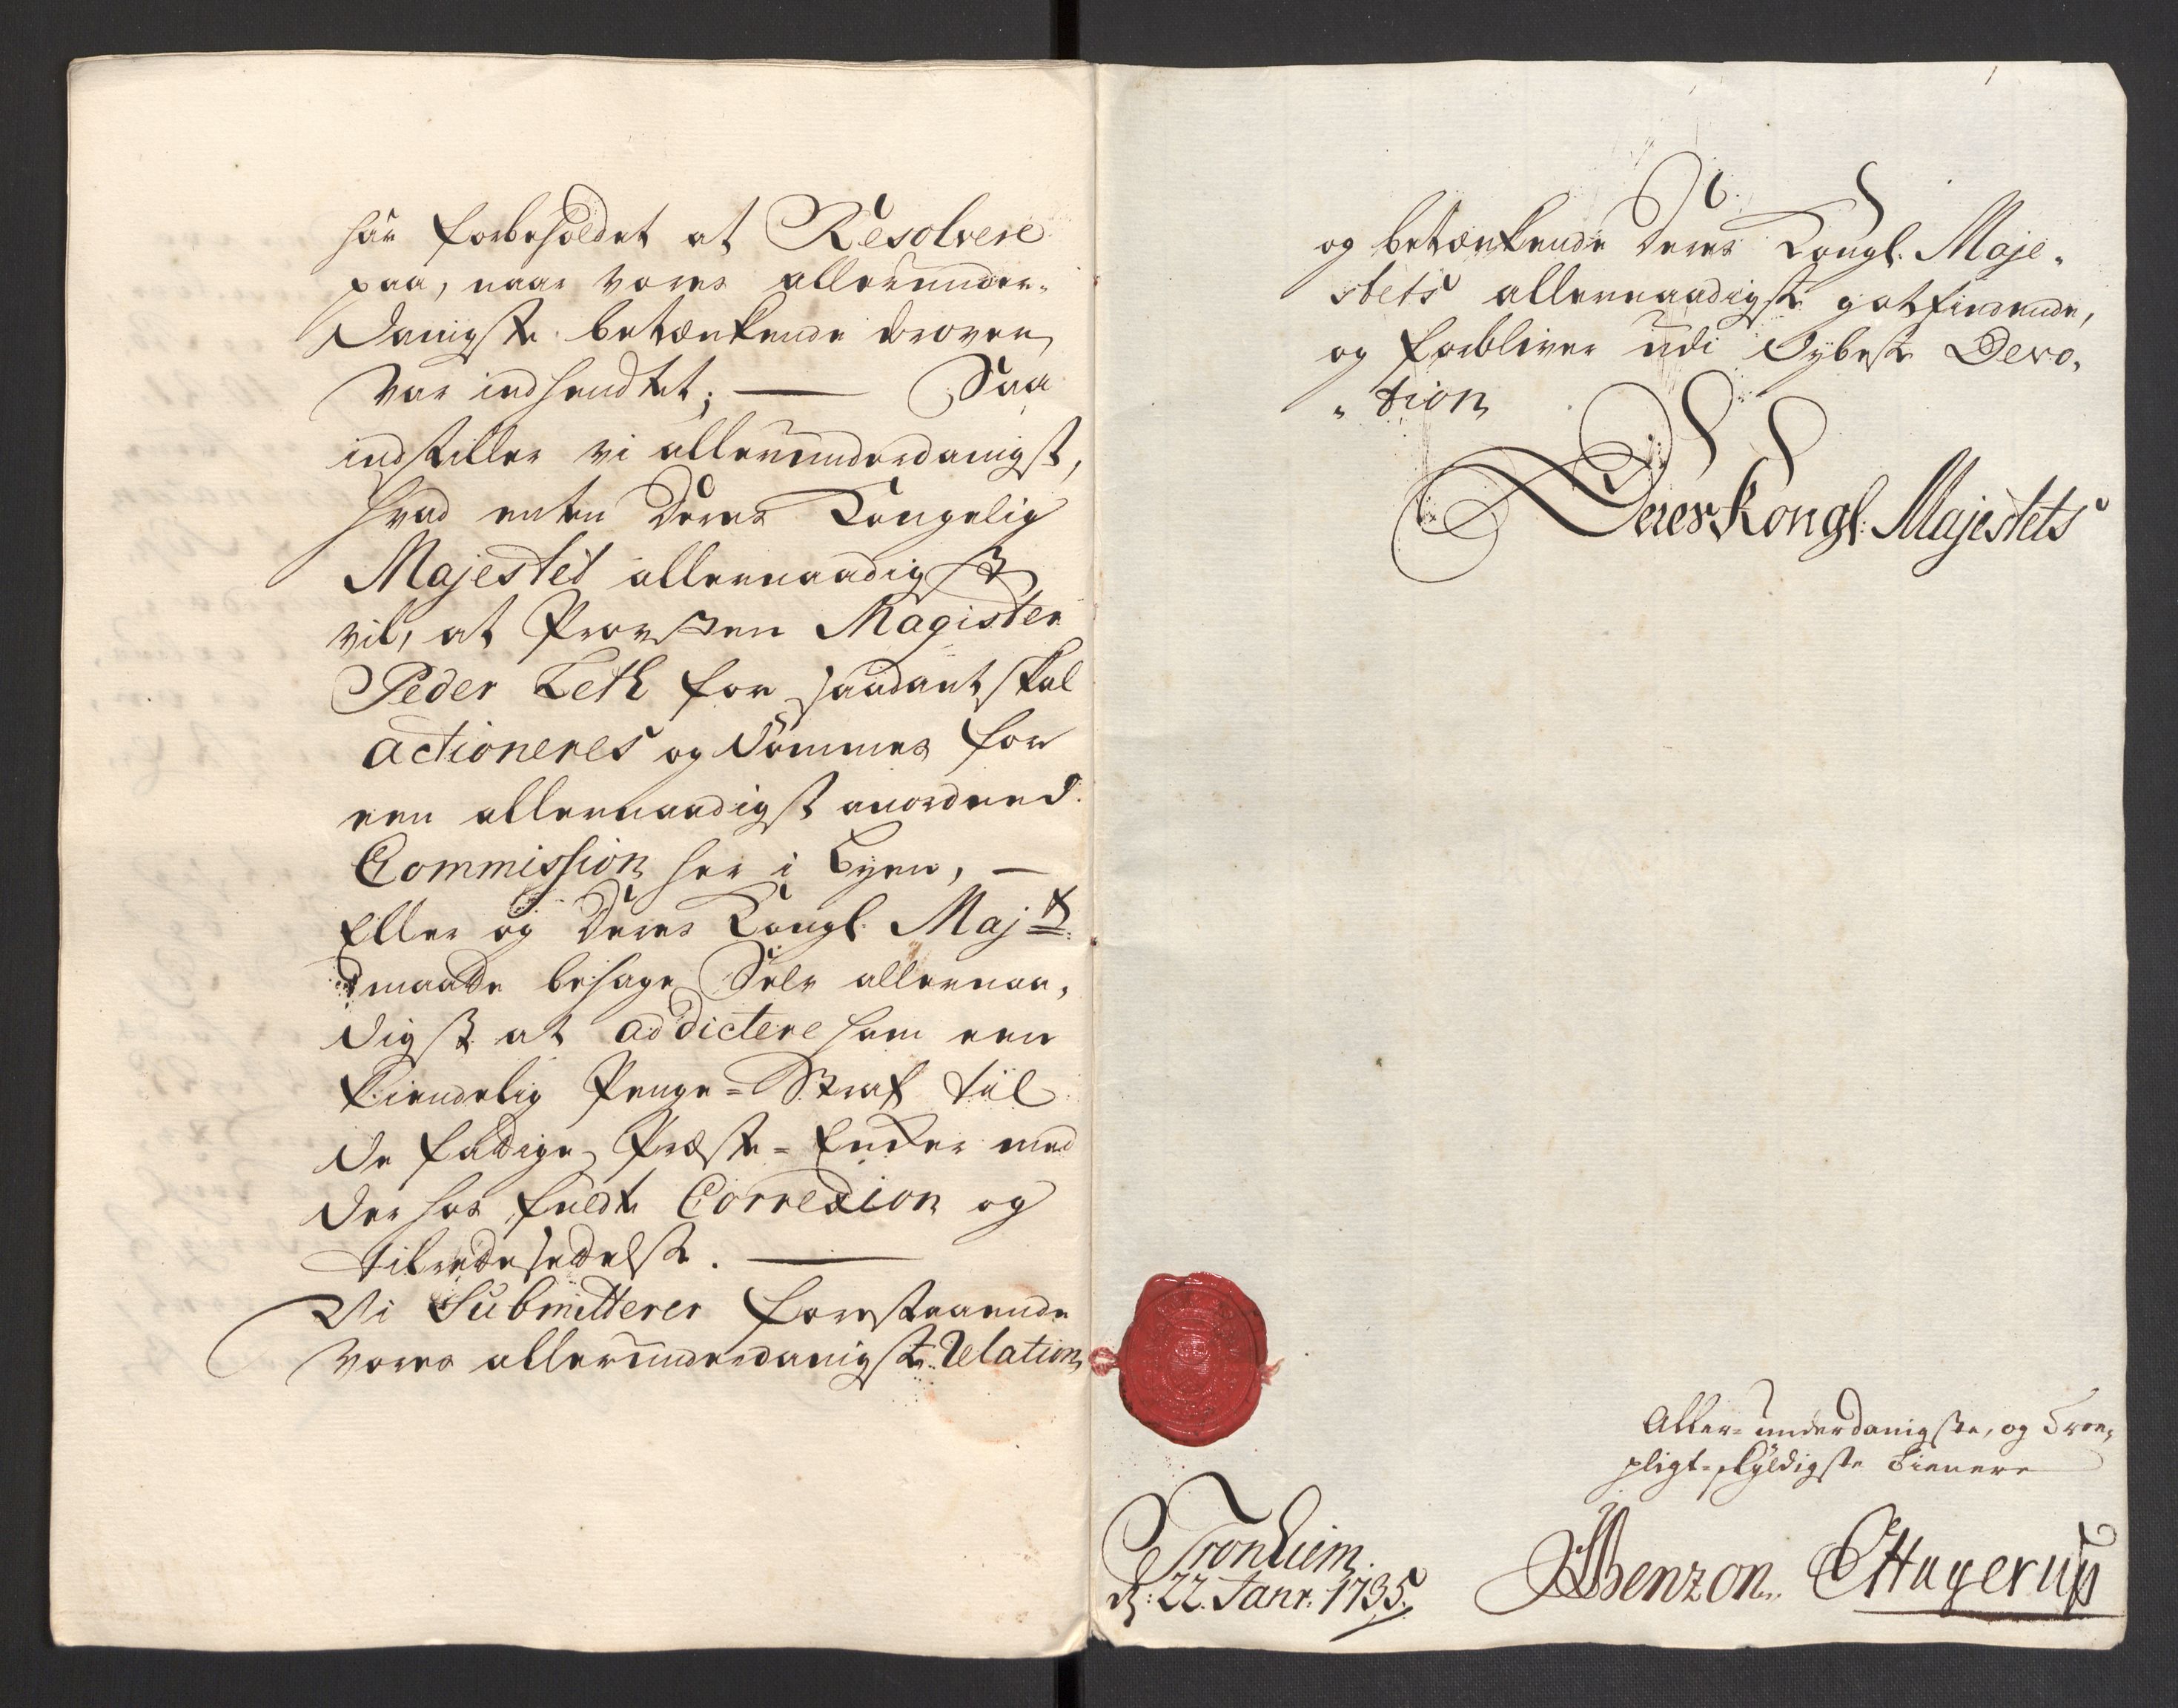 har forbeholdet at Resolvere
paa, naar vores allerunder-
danigste betænkende drover
var indsendtet; — Saa
indstiller vi allerunderdanigst,
hvad enten Deres Kongelig
Majestet allernaadigst
vil, at Provsten Magister
Peder Leth for saadant skal
actioneres og dømmes for
een allernaadigst anordned
Commission her i Byen, —
Eller og Deres Kongl. Majts
maatte behage Selv allernaa-
digst at addictere ham een
kiendelig Penge-Straf til
de fattige Præste-Enker med
der hos fuldt Correxion og
tilrettesettelse. —
Vi Submitterer forestaaende
vores allerunderdanigste Relation
og betænkende Deres Kongl. Maje-
stets allernaadigste gotfindende,
og forbliver udi dybeste Devo-
-tion
Deres Kongl. Majestets
Aller-underdanigste, og Troe-
pligt-skyldigste Tienere
Tronhiem
d: 22. Janr. 1735.
Benzon EHagerup